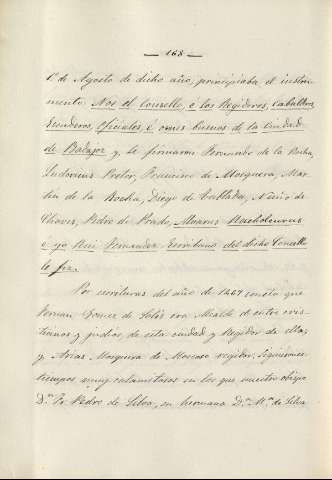 — 168 —
1º de Agosto de dicho año, principiaba el instru-
mento Nos el Conzello, e los Regidores, Caballros
Escuderos, Oficiales, é omes buenos de la Ciudad
de Badajoz y, se firmaron Fernando de la Rocha,
Ludovicus Pretor, Francisco de Mosquera, Mar-
tin de la Rocha, Diego de Tablada, Nuño de
Chaves, Pedro de Prado, Alvarus Bachalaureus
e yo Rui Fernandez Escribano del dicho Concello
lo fiz.
Por escrituras del año de 1467 consta que
Hernan Gomez de Solis era Alcalde de entre cris-
tianos y judios, de esta ciudad y Regidor de ella,
y Arias Mosquera de Moscoso regidor. Siguieronse
tiempos muy calamitosos en los que nuestro obispo
D.n Fr. Pedro de Silva, su hermana D.ª M.ª de Silva